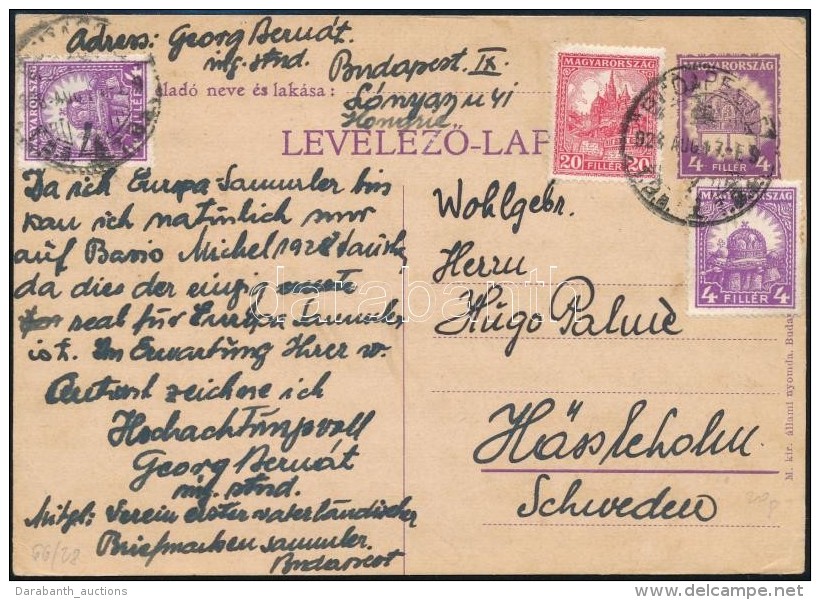 Adress: Georg Bernát.
ing. stud.
Budapest. IX.
Lónyay u 41
Hongrie
ladó neve és lakása:
LEVELEZŐ-LAP
MAGYARORSZÁG
4 FILLÉR 4
MAGYARORSZÁG
20 FILLÉR 20
MAGYARORSZÁG
4 FILLÉR 4
MAGYARORSZÁG
4 FILLÉR 4
BUDAPEST
Da ich Europa-Sammler bin
kan ich natürlich nur
auf Basis Michel 1928 tausche
da dies der einzig
real für Europa Sammler
ist. Im Erwartung Ihrer w.
Antwort zeichne ich
Hochachtungsvoll
Georg Bernát
ing. stud.
Mitgl: Verein erster vaterländischer
Briefmarkensammler.
Budapest
Wohlgebr.
Herrn
Hugo Palmè
Hässleholm
Schweden
M. kir. állami nyomda. Buda
66/28
databanth
Darabanth_auctions
©delcampe.net